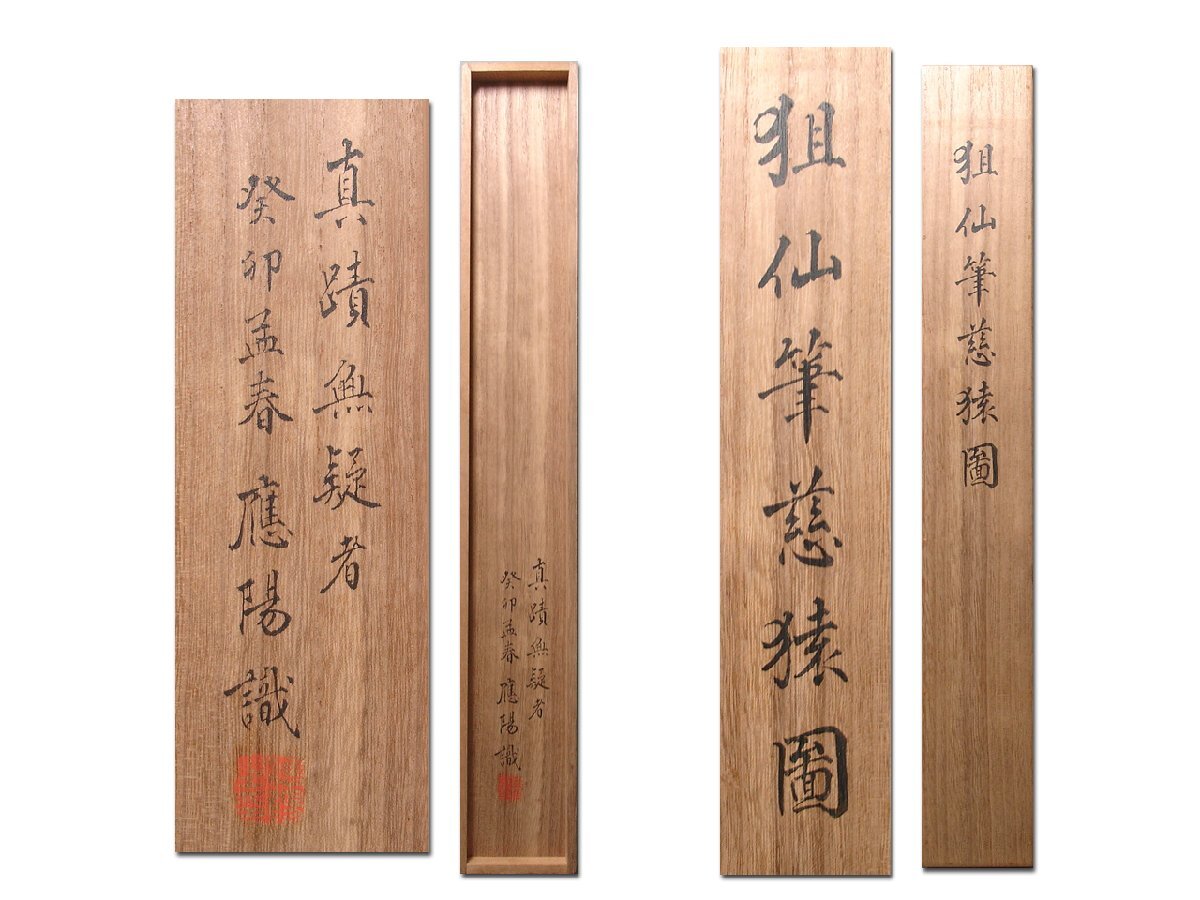 真蹟無疑者
癸卯孟春應陽識
真蹟無疑者
癸卯孟春應陽識
狙仙筆慈猿圖
狙仙筆慈猿圖